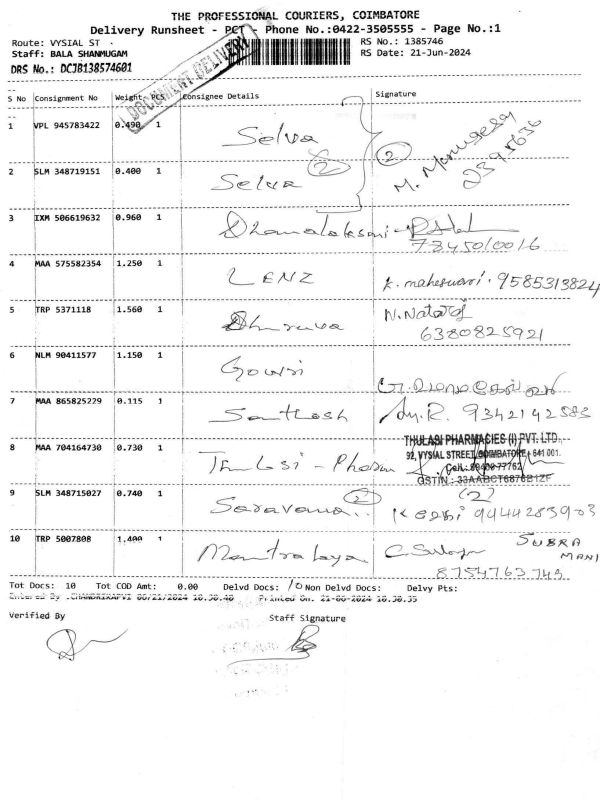 THE PROFESSIONAL COURIERS, COIMBATORE
Delivery Runsheet - PCT - Phone No.:0422-3505555 - Page No.:1
Route: VYSIAL ST
RS No.: 1385746
Staff: BALA SHANMUGAM
RS Date: 21-Jun-2024
DRS No.: DCJB138574601
DOCUMENT DELIVERY
S No Consignment No Weight PCS Consignee Details Signature
1 VPL 945783422 0.490 1 Selva
2 SLM 348719151 0.400 1 Selva (2) (2) M. 2395636
3 IXM 506619632 0.960 1 Dhanalakshmi
7845010016
4 MAA 575582354 1.250 1 LENZ K. maheswari. 9585313824
5 TRP 5371118 1.560 1 Dhruva N. Nataraj
6380825921
6 NLM 90411577 1.150 1 Gowri
7 MAA 865825229 0.115 1 Santhosh 9342142583
8 MAA 704164730 0.730 1 Thulasi - Pharm
THULASI PHARMACIES (I) PVT. LTD.
92, VYSIAL STREET, COIMBATORE - 641 001.
Cell: 89400 77762
GSTIN : 33AABCT6878B1ZF
9 SLM 348715027 0.740 1 Saravana.. (2) (2) 9444283903
10 TRP 5007808 1.400 1 Mantralaya SUBRA MANI
8754763749
Tot Docs: 10 Tot COD Amt: 0.00 Delvd Docs: 10 Non Delvd Docs: Delvy Pts:
Entered By :CHANDRIKAPVI 06/21/2024 10.30.40 Printed On. 21-06-2024 10.30.35
Verified By
Staff Signature